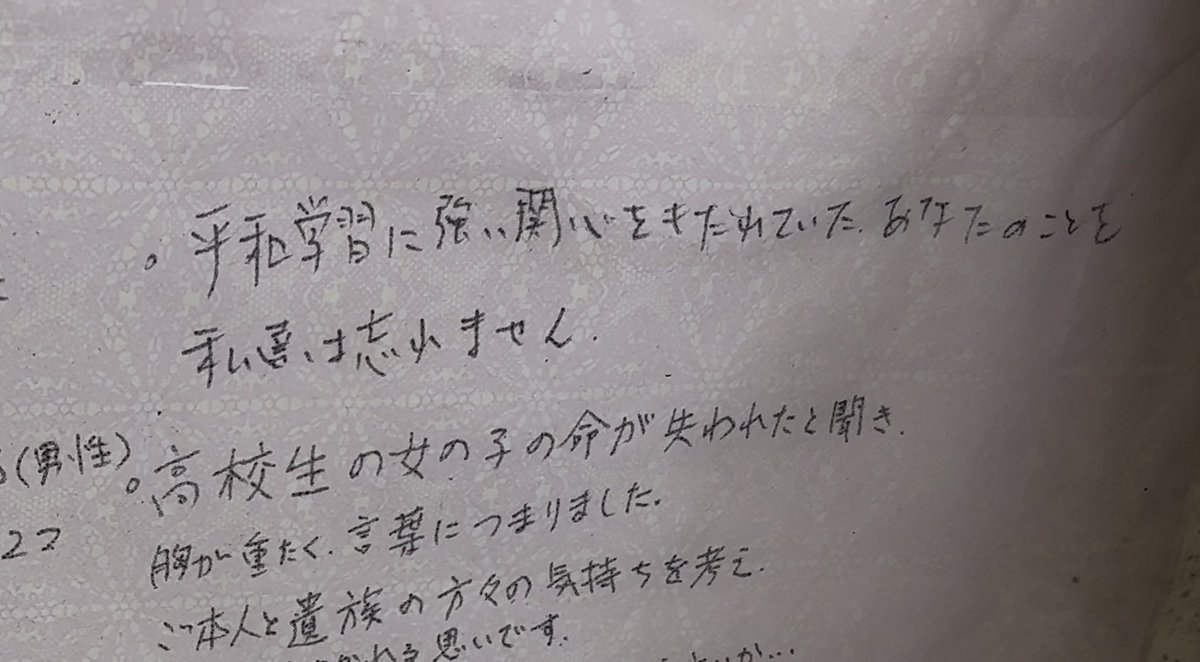 。平和学習に強い関心をきたれていた、あなたのことを
私達は忘れません.
(男性)
。高校生の女の子の命が失われたと聞き、
22
胸が重たく、言葉につまりました。
ご本人と遺族の方々の気持ちを考え、
かれる思いです。
が…